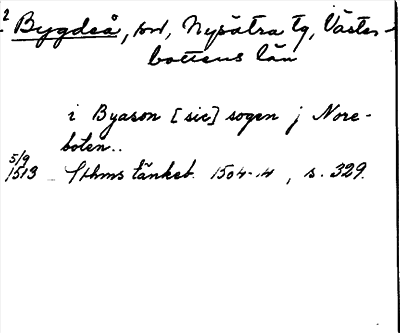 2
Bygdeå, sn, Nysätra tg, Väster-
bottens län
i Byason [sic] sogen j Nore-
boten..
5/9
1513 Sthms tänkeb. 1504-14, s. 329.